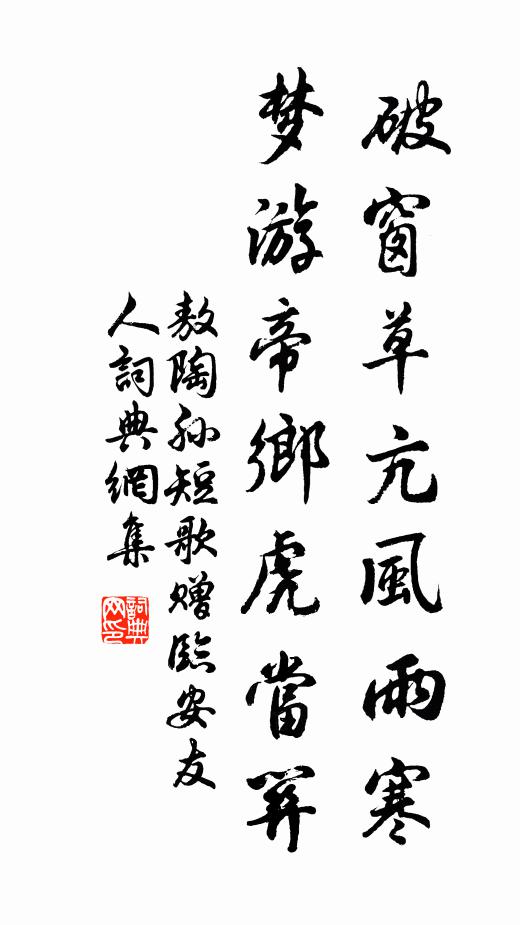 破窗草亢風雨寒
梦游帝鄉虎當關
敖陶孙短歌赠臨安友
人詞典網集
詞典网印